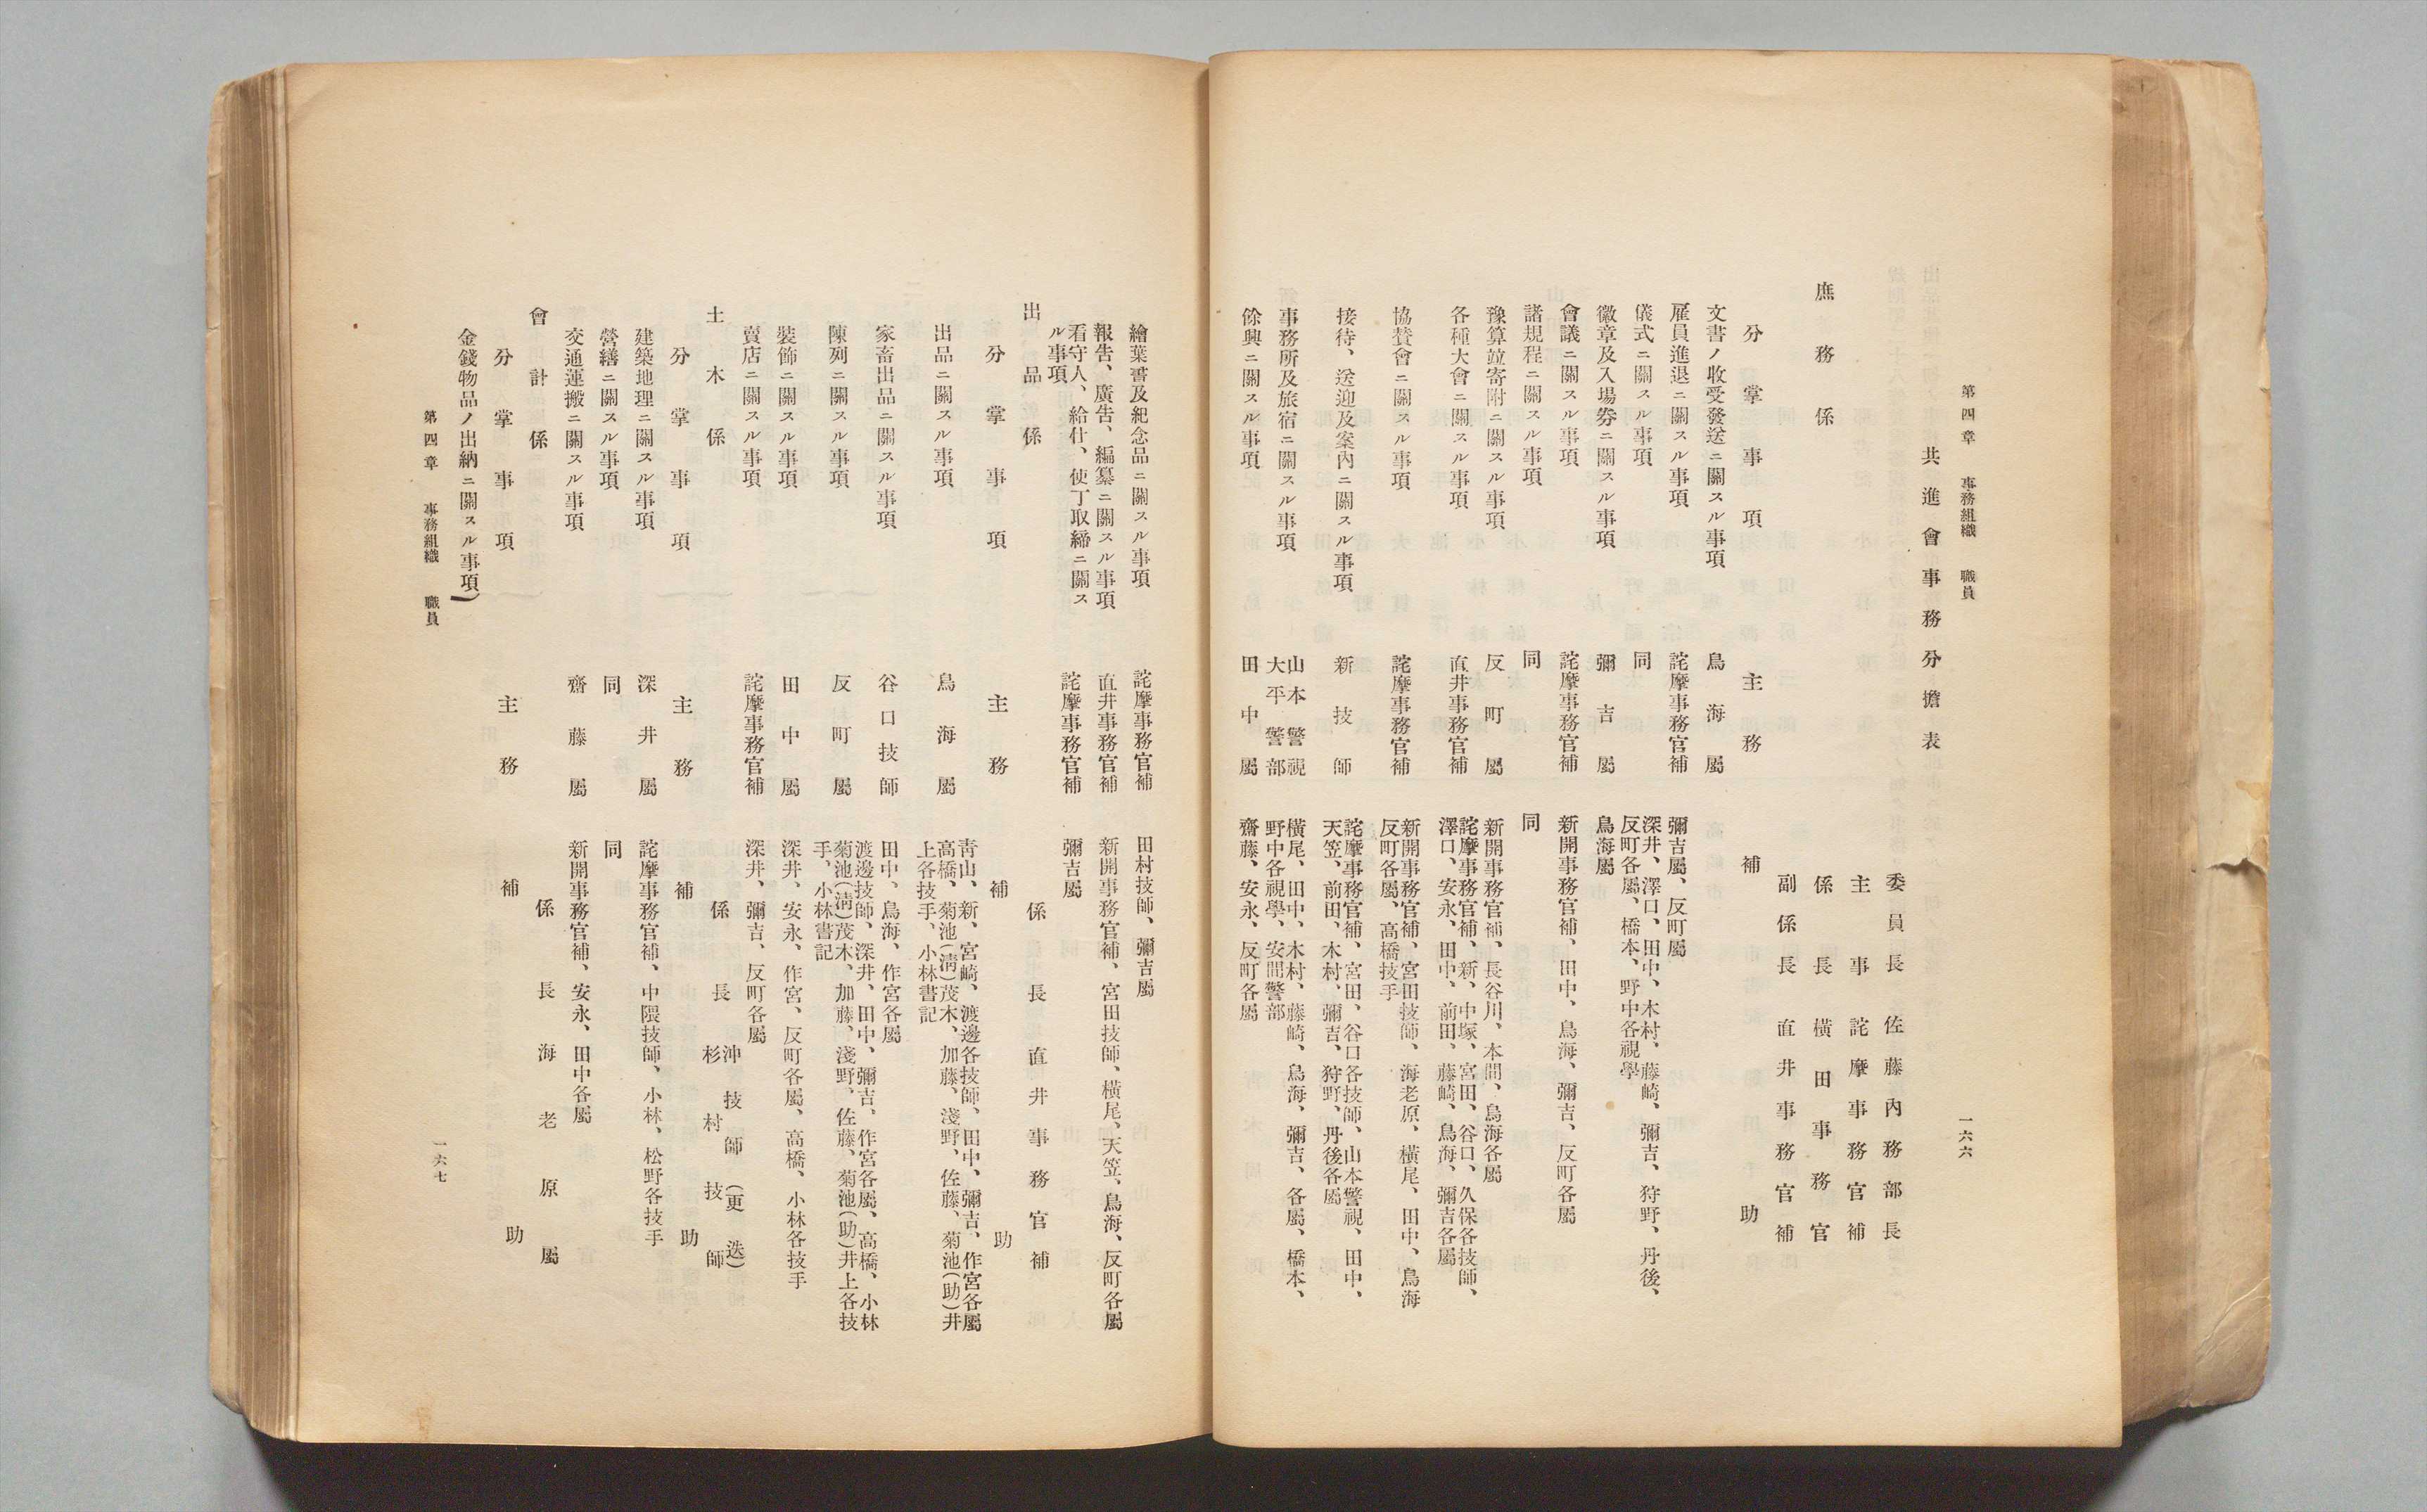 第四章　事務組織　職員　一六六
共進會事務分擔表
委員長　佐藤內務部長
主事　詫摩事務官補
庶務係　係長　橫田事務官
副係長　直井事務官補
分掌事項　主務　補助
文書ノ收受發送ニ關スル事項　鳥海屬　彌吉屬、反町屬
雇員進退ニ關スル事項　詫摩事務官補　深井、澤口、田中、木村、藤崎、彌吉、狩野、丹後、
儀式ニ關スル事項　同　反町各屬、橋本、野中各視學
徽章及入場券ニ關スル事項　彌吉屬　鳥海屬
會議ニ關スル事項　詫摩事務官補　新開事務官補、田中、鳥海、彌吉、反町各屬
諸規程ニ關スル事項　同　同
豫算竝寄附ニ關スル事項　反町屬　新開事務官補、長谷川、本間、鳥海各屬
各種大會ニ關スル事項　直井事務官補　詫摩事務官補、新、中塚、宮田、谷口、久保各技師、
澤口、安永、田中、前田、藤崎、鳥海、彌吉各屬
協賛會ニ關スル事項　詫摩事務官補　新開事務官補、宮田技師、海老原、橫尾、田中、鳥海
反町各屬、高橋技手
接待、送迎及案內ニ關スル事項　新技師　詫摩事務官補、宮田、谷口各技師、山本警視、田中、
天笠、前田、木村、彌吉、狩野、丹後各屬
事務所及旅宿ニ關スル事項　山本警視　橫尾、田中、木村、藤崎、鳥海、彌吉、各屬、橋本、
大平警部　野中各視學、安間警部
餘興ニ關スル事項　田中屬　齋藤、安永、反町各屬
繪葉書及紀念品ニ關スル事項　詫摩事務官補　田村技師、彌吉屬
報告、廣告、編纂ニ關スル事項　直井事務官補　新開事務官補、宮田技師、橫尾、天笠、鳥海、反町各屬
看守人、給仕、使丁取締ニ關ス　詫摩事務官補　彌吉屬
ル事項
出品係　係長　直井事務官補
分掌事項　主務　補助
出品ニ關スル事項　鳥海屬　靑山、新、宮崎、渡邊各技師、田中、彌吉、作宮各屬
高橋、菊池(淸)茂木、加藤、淺野、佐藤、菊池(助)井
上各技手、小林書記
家畜出品ニ關スル事項　谷口技師　田中、鳥海、作宮各屬
陳列ニ關スル事項　反町屬　渡邊技師、深井、田中、彌吉、作宮各屬、高橋、小林
菊池(淸)茂木、加藤、淺野、佐藤、菊池(助)井上各技
手、小林書記
裝飾ニ關スル事項　田中屬　深井、安永、作宮、反町各屬、高橋、小林各技手
賣店ニ關スル事項　詫摩事務官補　深井、彌吉、反町各屬
土木係　係長　沖技師(更迭)
杉村技師
分掌事項　主務　補助
建築地理ニ關スル事項　深井屬　詫摩事務官補、中隈技師、小林、松野各技手
營繕ニ關スル事項　同　同
交通運搬ニ關スル事項　齋藤屬　新開事務官補、安永、田中各屬
會計係　係長　海老原屬
分掌事項　主務　補助
金錢物品ノ出納ニ關スル事項)
第四章　事務組織　職員　一六七